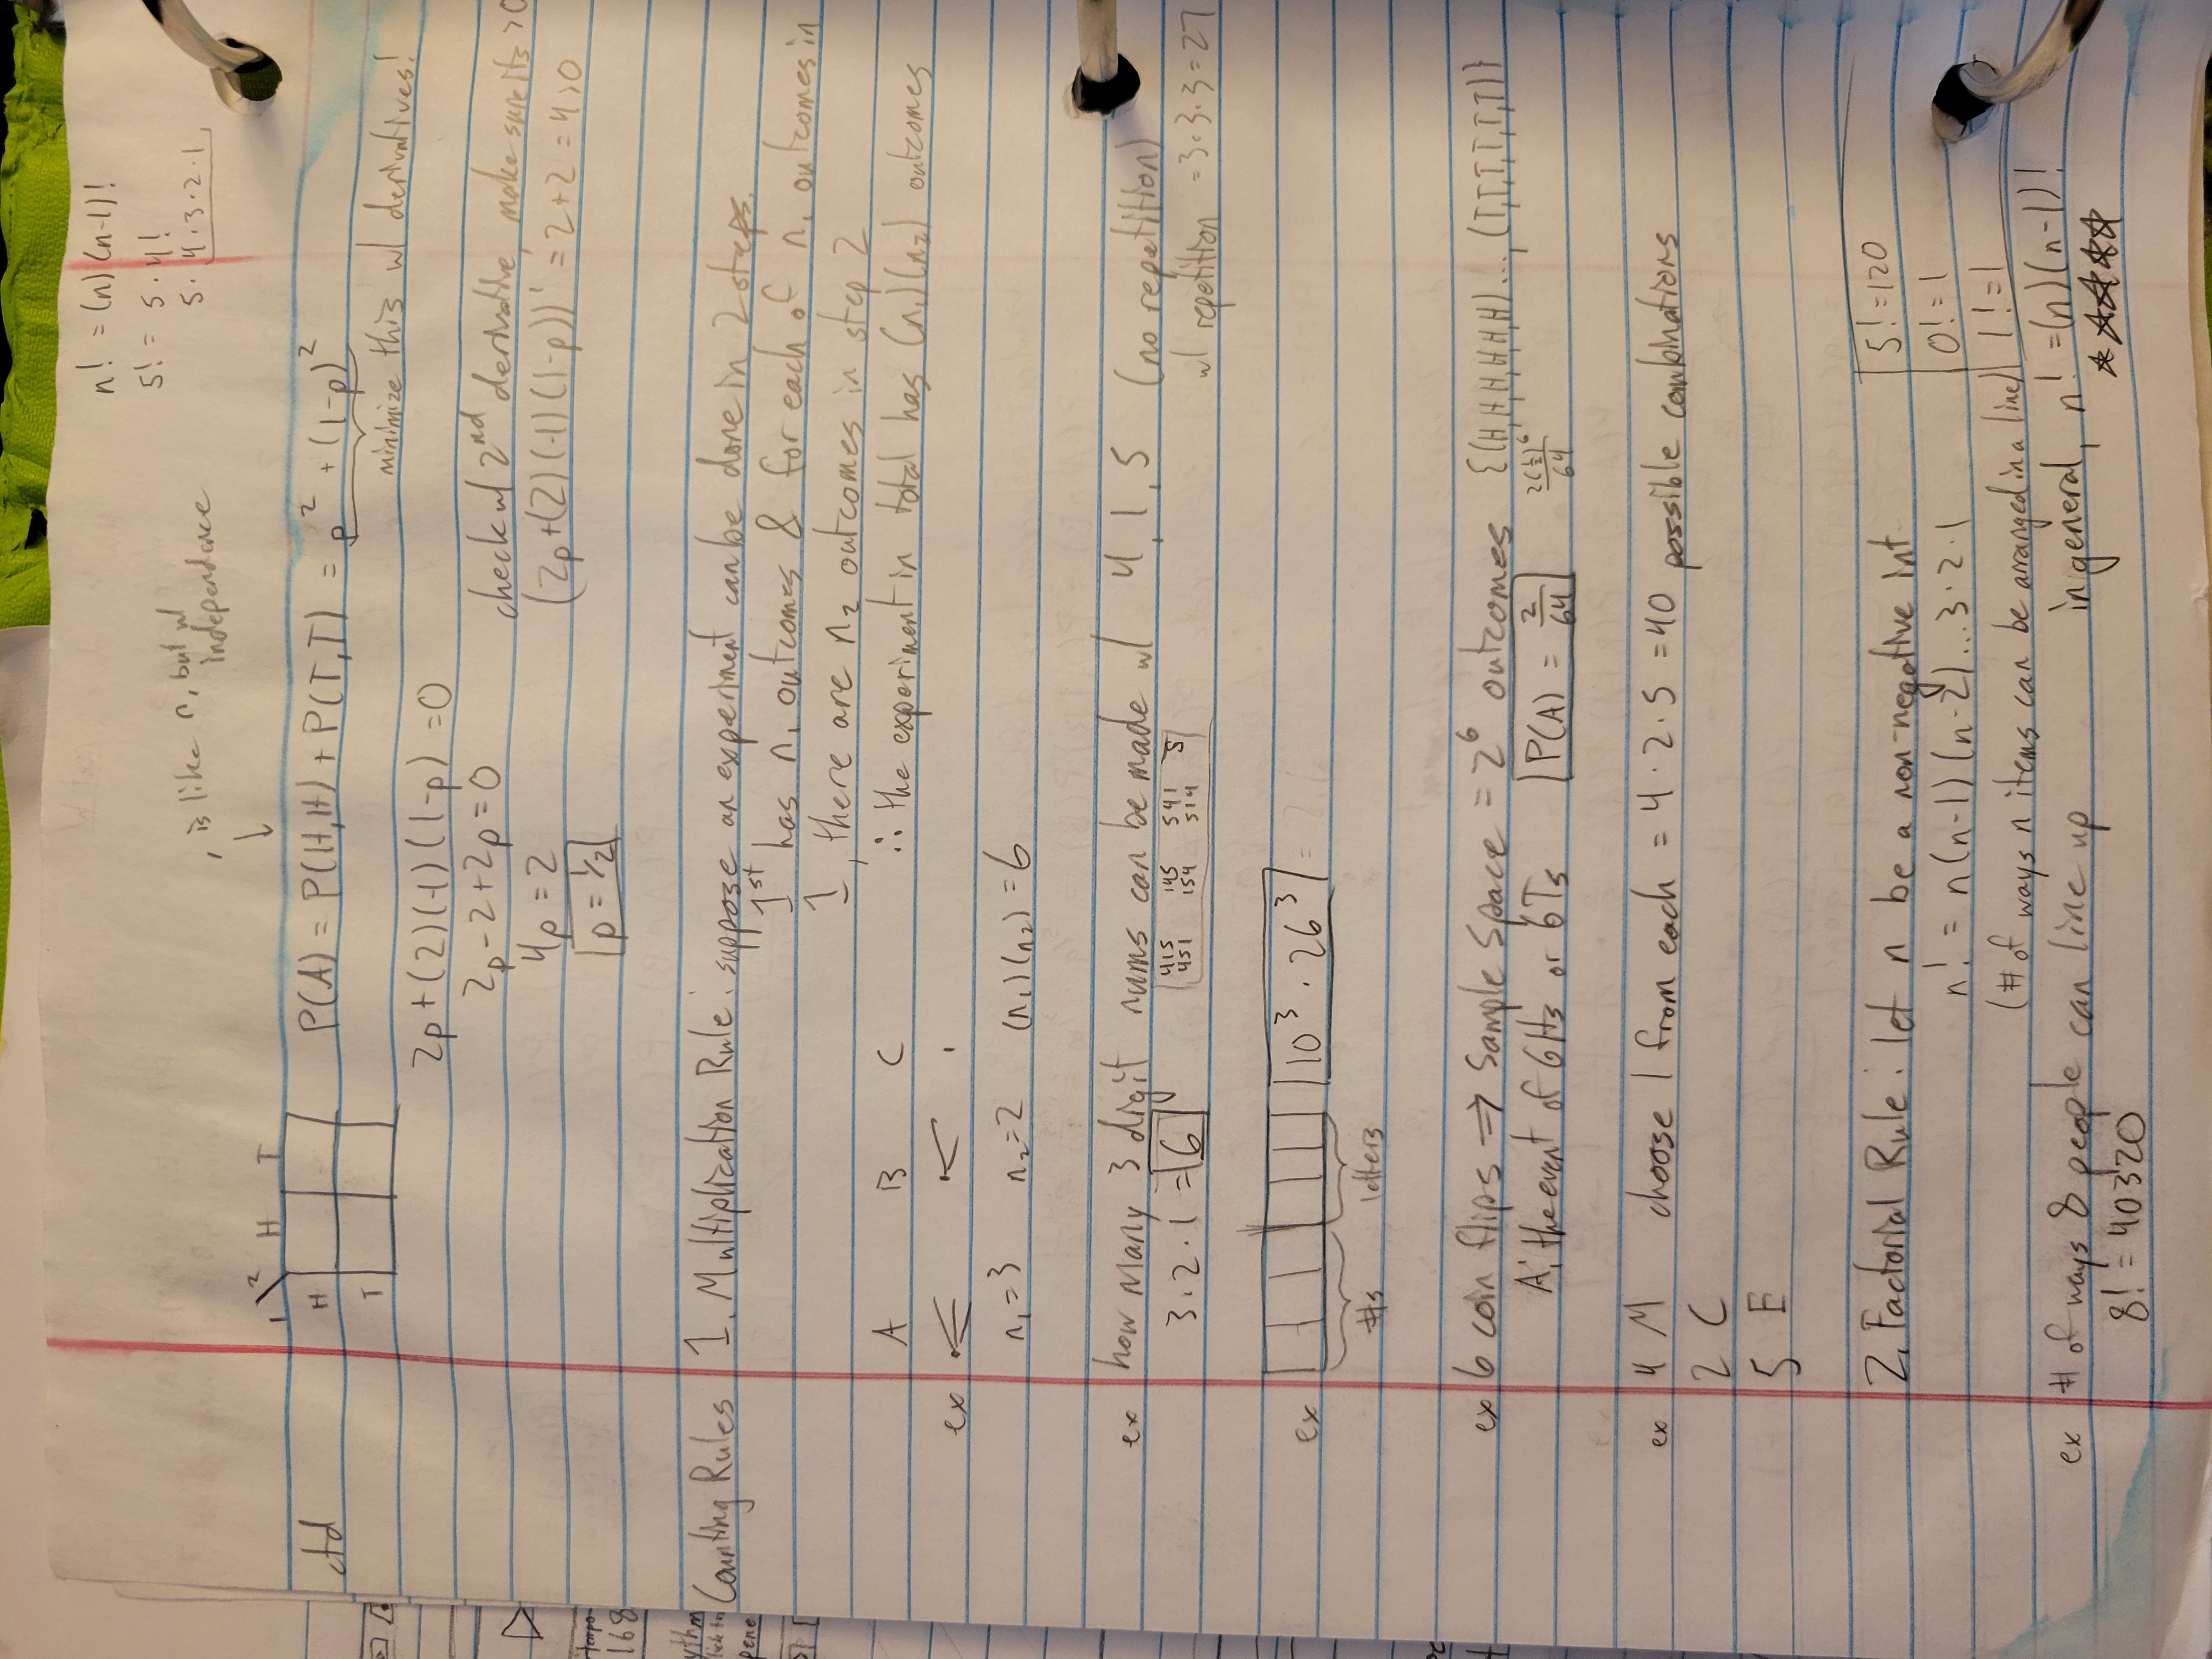 n! = (n)(n-1)!
5! = 5·4!
5·4·3·2·1
, is like ∩, but w/
independence
1\2 H T
H
T
ctd
P(A) = P(H,H) + P(T,T) = p² + (1-p)²
minimize this w/ derivatives!
2p+(2)(-1)(1-p) = 0
2p-2+2p=0
check w/ 2nd derivative, make sure its >0
4p = 2
(2p+(2)(-1)(1-p))' = 2+2 = 4>0
p = 1/2
tempo
168
ythm
pene
Counting Rules
1. Multiplication Rule: suppose an experiment can be done in 2 steps.
1st has n₁ outcomes & for each of n₁ outcomes in
1, there are n₂ outcomes in step 2
∴ the experiment in total has (n₁)(n₂) outcomes
A B C
ex
n₁=3 n₂=2 (n₁)(n₂)=6
ex how many 3 digit nums can be made w/ 4, 1, 5 (no repetition)
3·2·1 = 6
415 145 541 S
451 154 514
w/ repetition = 3·3·3=27
ex 10³·26³ =
#s letters
ex 6 coin flips ⇒ Sample Space = 2⁶ outcomes {(H,H,H,H,H,H)..., (T,T,T,T,T,T)}
A: the event of 6Hs or 6Ts P(A) = 2/64 2(½)⁶/64
ex 4 M choose 1 from each = 4·2·5 = 40 possible combinations
2 C
5 E
2. Factorial Rule: let n be a non-negative int
n! = n(n-1)(n-2)...3·2·1
(# of ways n items can be arranged in a line)
5!=120
0!=1
1!=1
ex # of ways 8 people can line up
8! = 40320
in general, n! = (n)(n-1)!